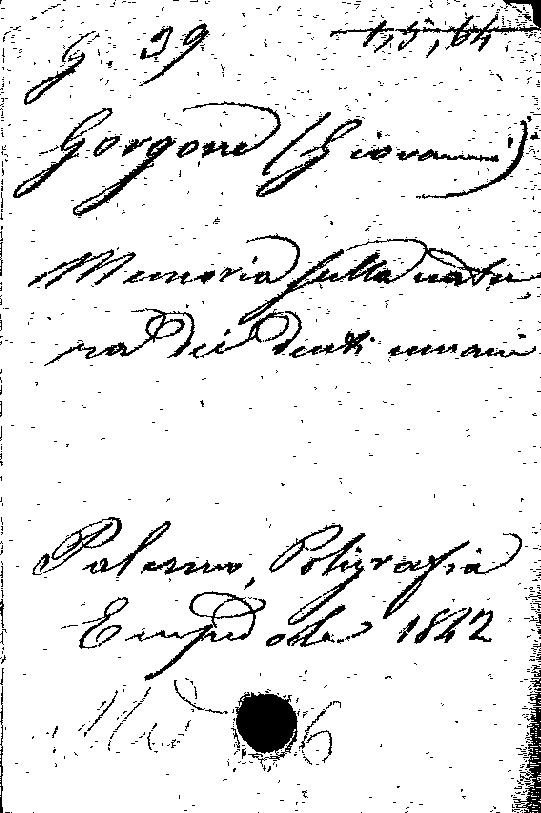 G. 39 1,5,64
Gorgone (Giovanni)
Memoria sulla natu
ra dei denti umani
Palermo, Poligrafia
Empedocle 1842
Md 6